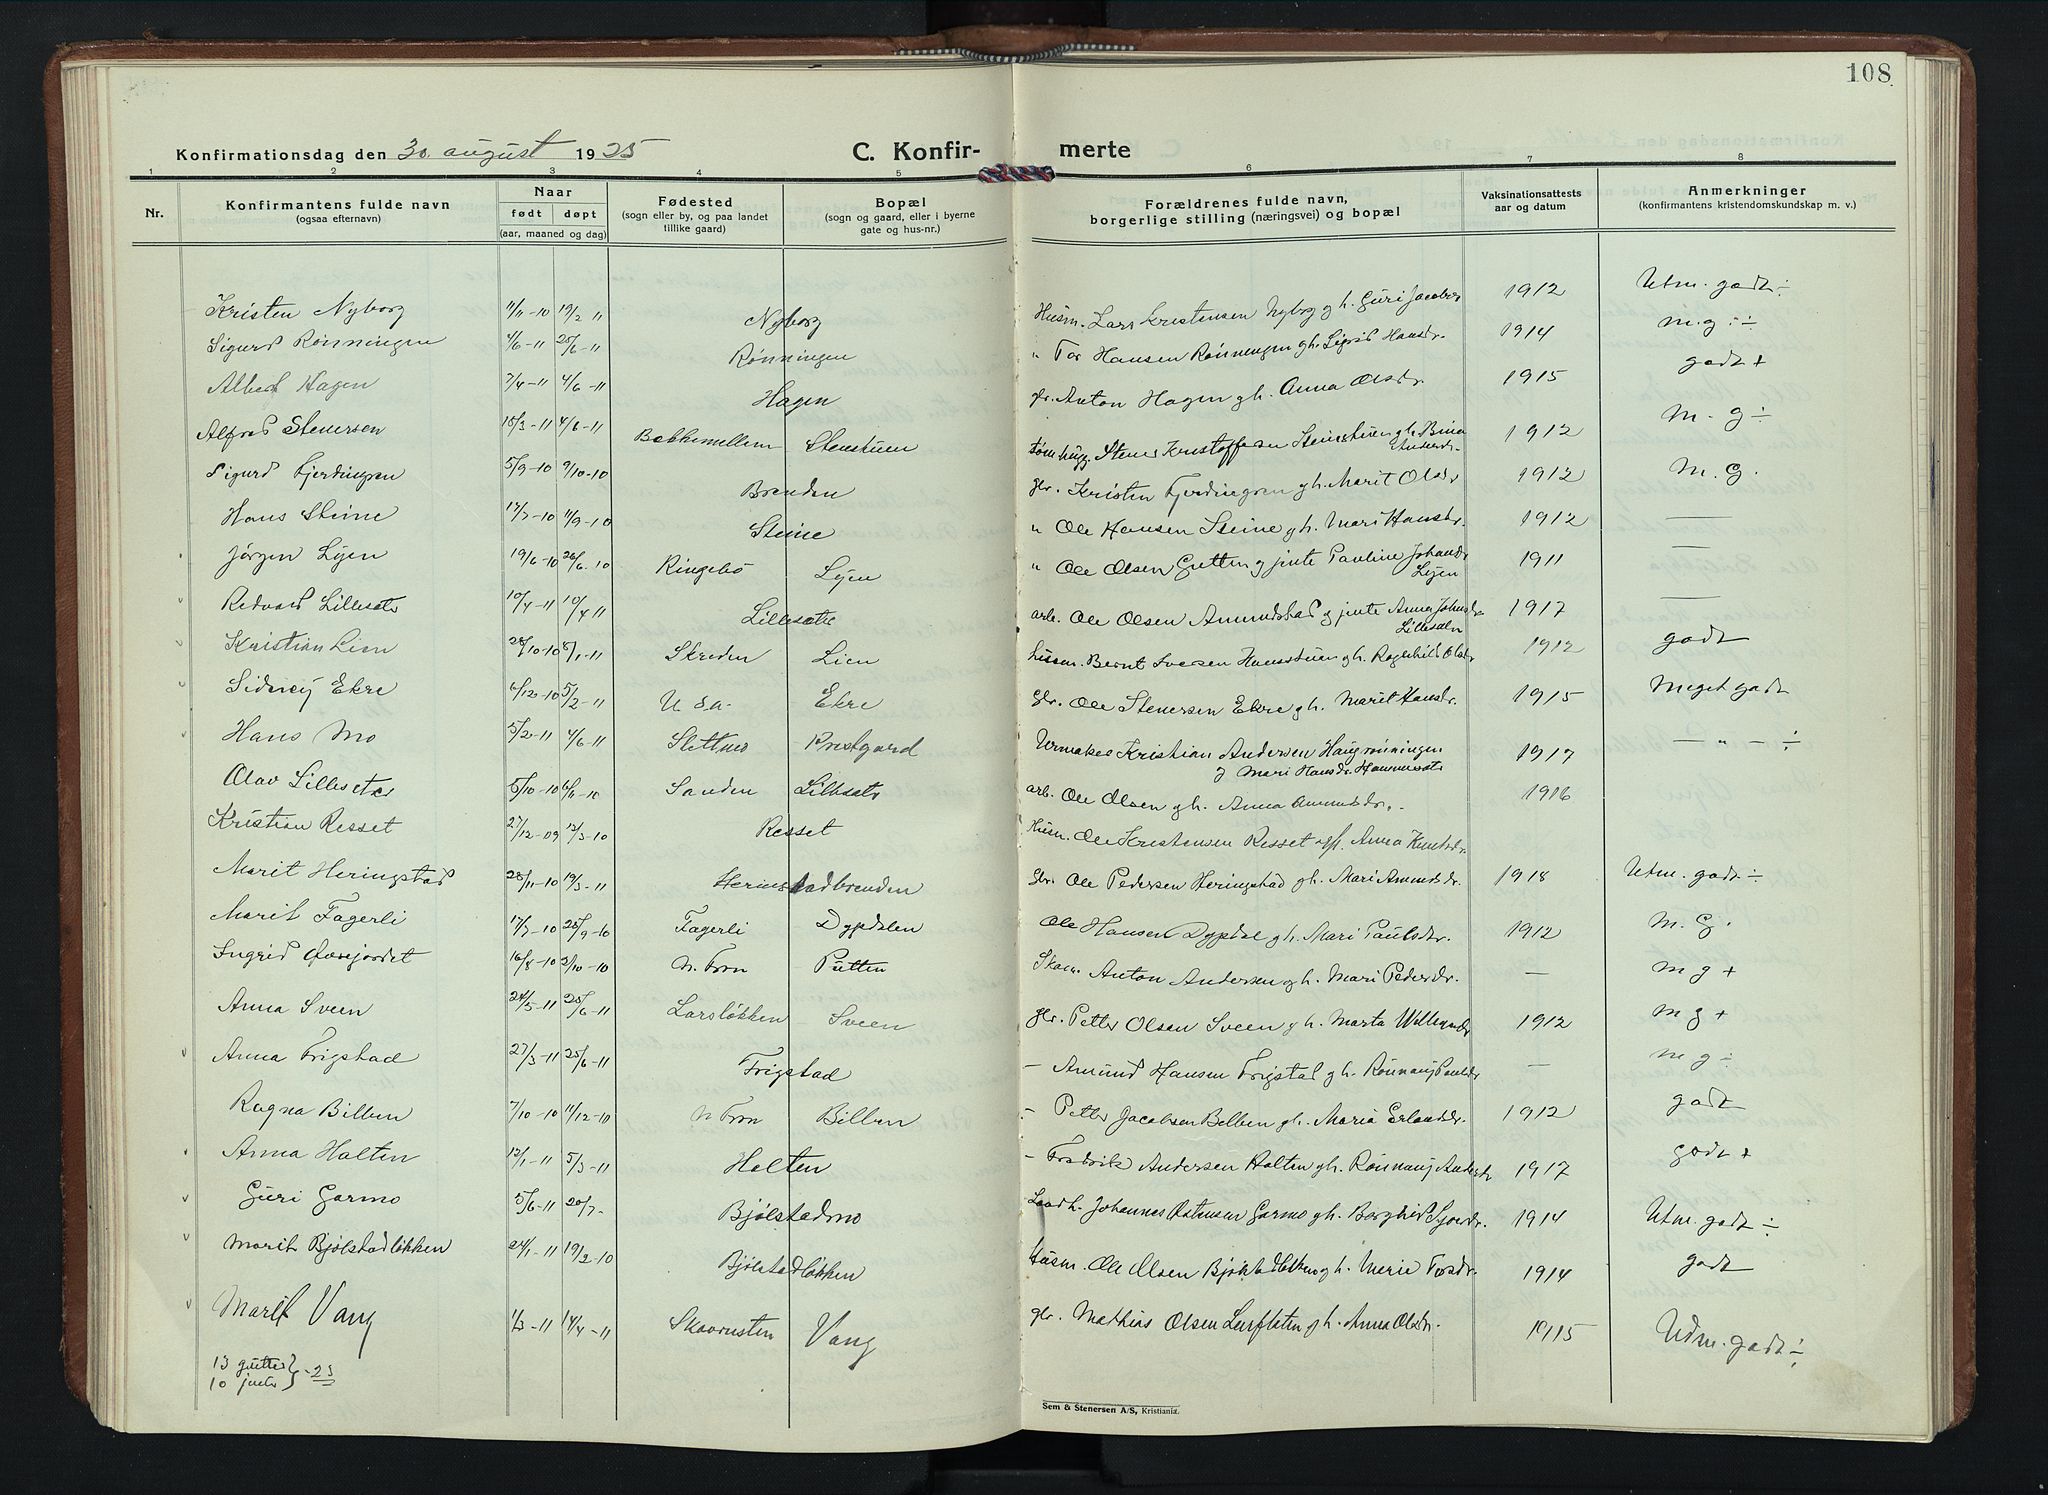 108
Konfirmationsdag den 30. august 1925 C. Konfir- merte
1 2 3 4 5 6 7 8
Nr. Konfirmantens fulde navn (ogsaa efternavn) Naar født døpt (aar, maaned og dag) Fødested (sogn eller by, og paa landet tillike gaard) Bopæl (sogn og gaard, eller i byerne gate og hus-nr.) Forældrenes fulde navn, borgerlige stilling (næringsvei) og bopæl Vaksinationsattests aar og datum Anmerkninger (konfirmantens kristendomskundskap m. v.)
Kristen Nyborg 11/11-10 19/2 11 Nyborg Husm. Lars Kristensen Nyborg g h. Guri Jacobsdr 1912 Utm. godt ÷
Sigurd Rønningen 4/6-11 25/6-11 Rønningen " Tor Hansen Rønningen gh. Sigrid Hansdr. 1914 m. g. ÷
Albert Hagen 7/4-11 4/6-11 Hagen gr. Anton Hagen gh. Anna Olsdr 1915 godt +
Alfred Stenersen 15/3-11 4/6-11 Bakkemellem Stenstuen Tømhugg. Stener Kristoffersen Stenstuen gh. Bina Andersdr. 1912 M. g ÷
Sigurd Fjerdingren 5/9-10 9/10-10 Brenden gbr. Kristen Fjerdingren gh. Marit Olsdr 1912 M. G.
Hans Steine 17/7-10 11/9-10 Steine " Ole Hansen Steine gh. Mari Hansdr. 1912 —
Jørgen Lyen 19/6-10 26/6-10 Ringebø Lyen " Ole Olsen Gutten og jente Pauline Johansdr Lyen 1911 —
Redvard Lillesætr 10/4-11 10/4 11 Lillesætr arb. Ole Olsen Amundstad og jente Anna Johnsdr Lillesætr 1917 —
Kristian Lien 28/10-10 8/1-11 Skreden Lien husm. Bernt Iversen Hansstuen gh. Ragnhild Olsdr 1912 godt
Sidney Ekre 6/12-10 5/2-11 U S a- Ekre Gbr. Ole Stenersen Ekre gh. Marit Hansdr. 1915 Meget godt
Hans Mo 5/2-11 4/6-11 Slettmo Prestgard Urmaker Kristian Andersen Haugrønningen og Mari Hansdr. Hammersætr 1917 — " — ÷
Olav Lilleseter 5/10-10 6/11-10 Sanden Lillesætr arb. Ole Olsen gh. Anna Amundsdr. 1916
Kristian Resset 27/12-09 13/3-10 Resset Husm. Ole Kristensen Resset gh. Anna Knutsdr.
Marit Heringstad 28/11-10 19/3-11 Heringstadbrenden Gbr. Ole Pedersen Heringstad gh. Mari Amundsdr. 1918 Utm. godt ÷
Marit Fagerli 17/7-10 25/9-10 Fagerli Dypdalen Ole Hansen Dypdal gh. Mari Paulsdr. 1912 M. G.
Ingrid 16/8-10 2/10-10 N. Fron Putten Skom. Anton Andersen gh. Mari Pedersdr. — m g +
Anna Sveen 24/5-11 25/6-11 Larsløkken Sveen gbr. Petter Olsen Sveen gh. Marta 1912 m g +
Anna Frigstad 27/3-11 25/6-11 Frigstad — Amund Hansen Frigstad gh. Rønnaug Paulsdr — m g ÷
Ragna Billben 7/10-10 11/12-10 N Fron Billben — Petter Jacobsen Billben gh. Maria Erlandsdr. 1912 godt
Anna Holten 13/1-11 5/3-11 Holten — Fredrik Andersen Holten gh. Rønnaug Andersdr 1917 godt +
Guri Garmo 5/6-11 20/7- Bjølstadmo Landh. Johannes Garmo gh. Borghild 1914 Utm. godt ÷
Marit Bjølstadløkken 24/1-11 19/2-10 Bjølstadløkken Husm. Ole Olsen Bjølstadløkken gh. Merie Torsdr. 1914 godt
Marit Vang 1/3-11 14/4-11 Skavrusten Vang gbr. Mathias Olsen gh. Anna Olsdr. 1915 Udm. godt ÷
13 gutter
10 jenter } - 23
Sem & Stenersen A/S, Kristiania.